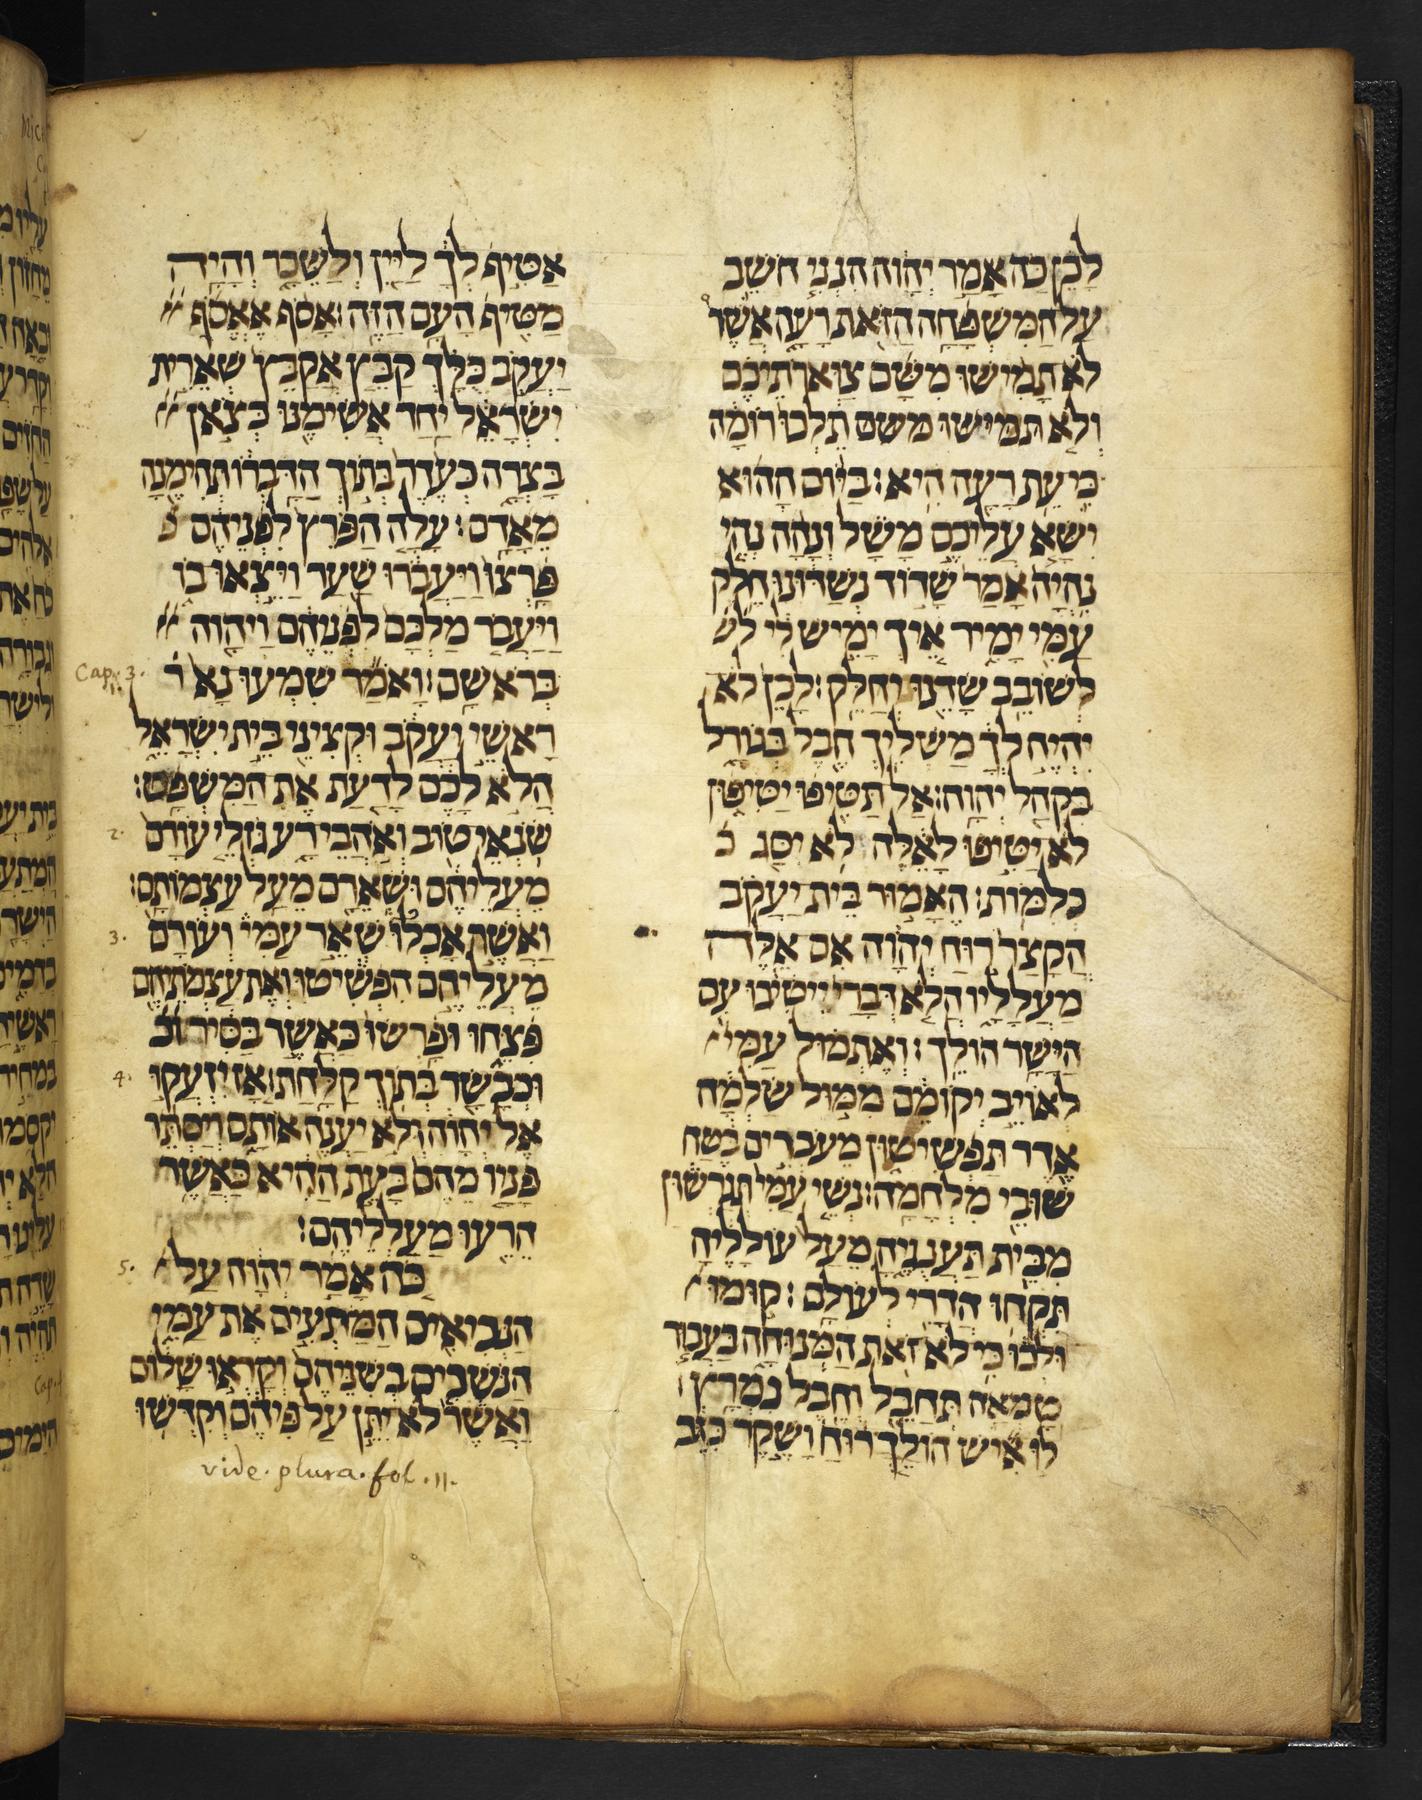 לָכֵן כֹּה אָמַר יְהוָה הִנְנִי חֹשֵׁב
עַל הַמִּשְׁפָּחָה הַזֹּאת רָעָה אֲשֶׁר
לֹא תָמִישׁוּ מִשָּׁם צַוְּארֹתֵיכֶם
וְלֹא תמישו משם תֵלְכוּ רוֹמָה
כִּי עֵת רָעָה הִיא׃ בַּיּוֹם הַהוּא
יִשָּׂא עֲלֵיכֶם מָשָׁל וְנָהָה נְהִי
נִהְיָה אָמַר שָׁדוֹד נְשַׁדּוּנוּ חֵלֶק
עַמִּי יָמִיר אֵיךְ יָמִישׁ לִי לש
לְשׁוֹבֵב שָׂדֵנוּ יְחַלֵּק׃ לָכֵן לֹא
יִהְיֶה לְךָ מַשְׁלִיךְ חֶבֶל בְּגוֹרָל
בִּקְהַל יְהוָה׃ אַל תַּטִּיפוּ יַטִּיפוּן
לֹא יַטִּיפוּ לָאֵלֶּה לֹא יִסַּג כ
כְּלִמּוֹת׃ הֶאָמוּר בֵּית יַעֲקֹב
הֲקָצַר רוּחַ יְהוָה אִם אֵלֶּה
מַעֲלָלָיו הֲלֹא דְבָרַי יֵיטִיבוּ עִם
הַיָּשָׁר הוֹלֵךְ׃ וְאֶתְמוּל עַמִּי
לְאוֹיֵב יְקוֹמֵם מִמּוּל שַׂלְמָה
אֶדֶר תַּפְשִׁיטוּן מֵעֹבְרִים בֶּטַח
שׁוּבֵי מִלְחָמָה׃ נְשֵׁי עַמִּי תְּגָרְשׁוּן
מִבֵּית תַּעֲנֻגֶיהָ מֵעַל עוֹלָלֶיהָ
תִּקְחוּ הֲדָרִי לְעוֹלָם׃ קוּמוּ
וּלְכוּ כִּי לֹא זֹאת הַמְּנוּחָה בַּעֲבוּר
טָמְאָה תְּחַבֵּל וְחֶבֶל נִמְרָץ׃
לוּ אִישׁ הוֹלֵךְ רוּחַ וָשֶׁקֶר כִּזֵּב
אַטִּיף לְךָ לַיַּיִן וְלַשֵּׁכָר וְהָיָה
מַטִּיף הָעָם הַזֶּה׃ אָסֹף אֶאֱסֹף
יַעֲקֹב כֻּלָּךְ קַבֵּץ אֲקַבֵּץ שְׁאֵרִית
יִשְׂרָאֵל יַחַד אֲשִׂימֶנּוּ כְּצֹאן
בָּצְרָה כְּעֵדֶר בְּתוֹךְ הַדָּבְרוֹ תְּהִימֶנָה
מֵאָדָם׃ עָלָה הַפֹּרֵץ לִפְנֵיהֶם פ
פָּרְצוּ וַיַּעֲבֹרוּ שַׁעַר וַיֵּצְאוּ בוֹ
וַיַּעֲבֹר מַלְכָּם לִפְנֵיהֶם וַיהוָה
Cap. 3. בְּרֹאשָׁם׃ וָאֹמַר שִׁמְעוּ נָא ר
רָאשֵׁי יַעֲקֹב וּקְצִינֵי בֵּית יִשְׂרָאֵל
הֲלֹא לָכֶם לָדַעַת אֶת הַמִּשְׁפָּט׃
2. שֹׂנְאֵי טוֹב וְאֹהֲבֵי רָע גֹּזְלֵי עוֹרָם
מֵעֲלֵיהֶם וּשְׁאֵרָם מֵעַל עַצְמוֹתָם׃
3. וַאֲשֶׁר אָכְלוּ שְׁאֵר עַמִּי וְעוֹרָם
מֵעֲלֵיהֶם הִפְשִׁיטוּ וְאֶת עַצְמֹתֵיהֶם
פִּצֵּחוּ וּפָרְשׂוּ כַּאֲשֶׁר בַּסִּיר וכ
4. וּכְבָשָׂר בְּתוֹךְ קַלָּחַת׃ אָז יִזְעֲקוּ
אֶל יְהוָה וְלֹא יַעֲנֶה אוֹתָם וְיַסְתֵּר
פָּנָיו מֵהֶם בָּעֵת הַהִיא כַּאֲשֶׁר
הֵרֵעוּ מַעַלְלֵיהֶם׃
5. כֹּה אָמַר יְהוָה עַל
הַנְּבִיאִים הַמַּתְעִים אֶת עַמִּי
הַנֹּשְׁכִים בְּשִׁנֵּיהֶם וְקָרְאוּ שָׁלוֹם
וַאֲשֶׁר לֹא יִתֵּן עַל פִּיהֶם וְקִדְּשׁוּ
vide. plura. fol. 11.